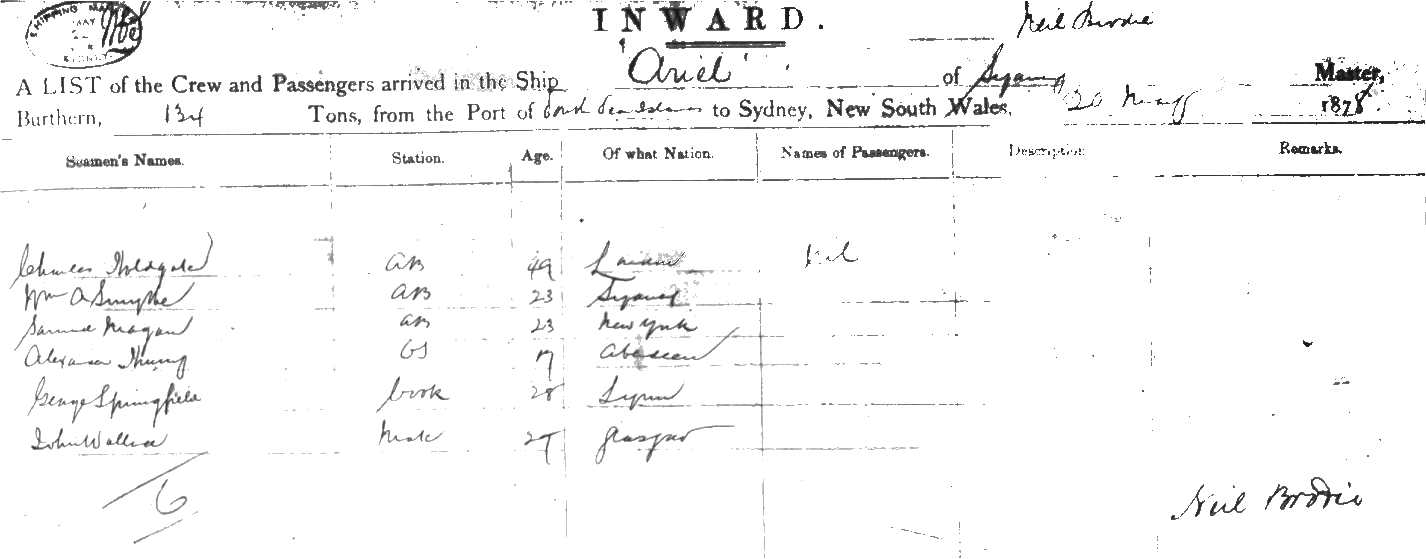 SHIPPING MA
MAY
SYDNEY
INWARD.
Neil Brodie
A LIST of the Crew and Passengers arrived in the Ship "Ariel" of Sydney Master,
Burthern, 134 Tons, from the Port of South Sea Islands to Sydney, New South Wales, 20 May 1878.
Seamen's Names. Station. Age. Of what Nation. Names of Passengers. Description Remarks.
Charles Holdgate AB 49 London Nil
Wm A Smythe AB 23 Sydney
Samuel Magan AB 23 New York
OS 17 Aberdeen
George Springfield Cook 28 Lynn
John Wallace Mate 27 Glasgow
6
Neil Brodie